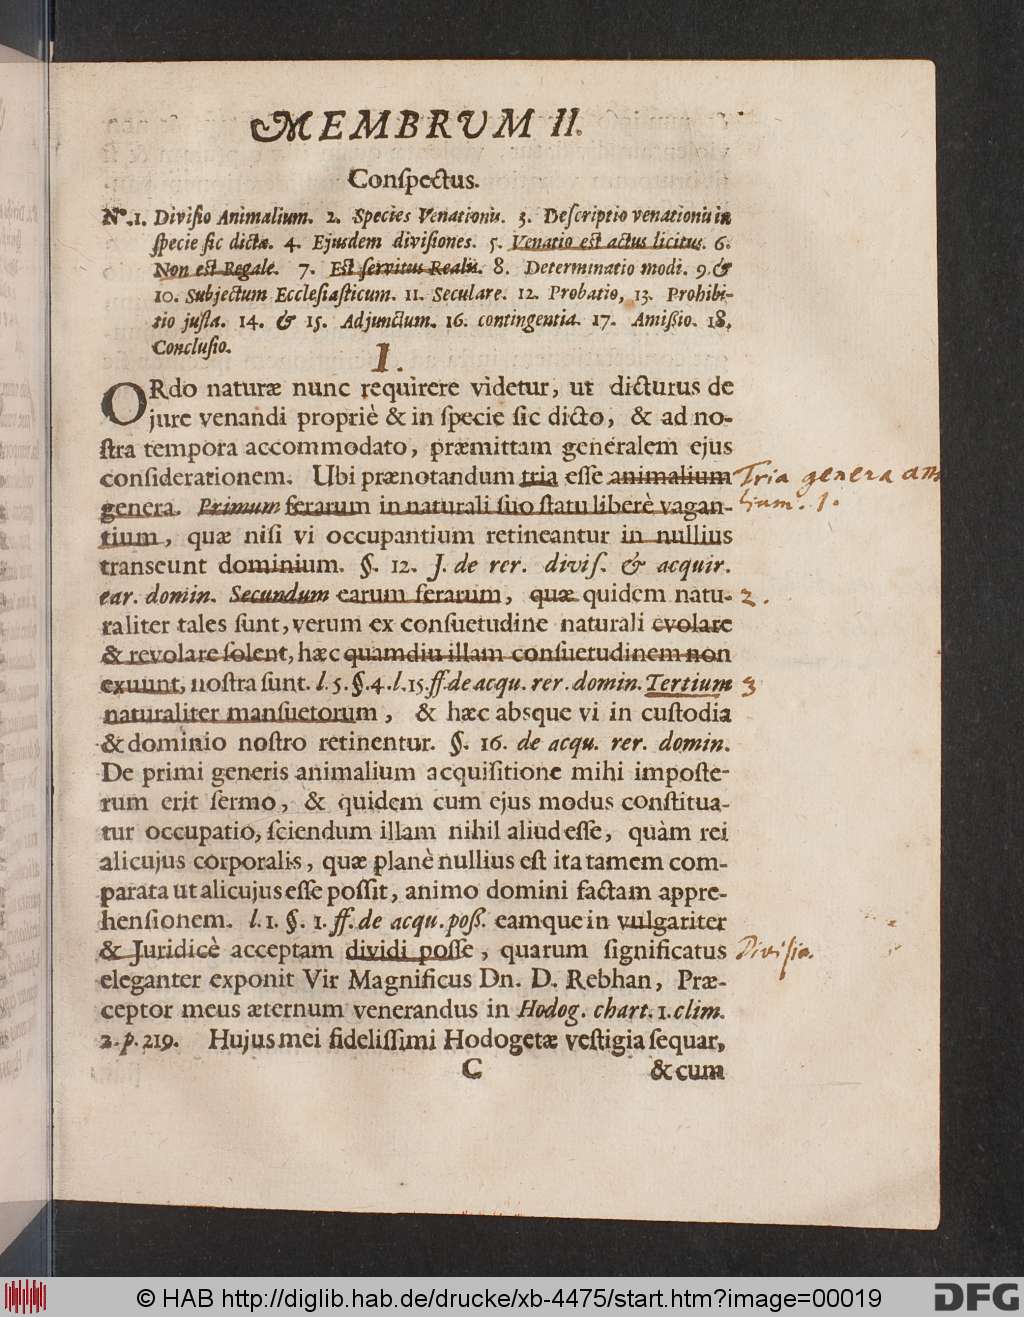 MEMBRUM II.
Conſpectus.
Nº. 1. Diviſio Animalium. 2. Species Venationis. 3. Deſcriptio venationis in
ſpecie ſic dictæ. 4. Ejusdem diviſiones. 5. Venatio eſt actus licitus. 6.
Non eſt Regale. 7. Eſt ſervitus Realis. 8. Determinatio modi. 9. &
10. Subjectum Eccleſiaſticum. 11. Seculare. 12. Probatio, 13. Prohibi-
tio juſta. 14. & 15. Adjunctum. 16. contingentia. 17. Amiſſio. 18.
Concluſio.
I.
ORdo naturæ nunc requirere videtur, ut dicturus de
jure venandi propriè & in ſpecie ſic dicto, & ad no-
ſtra tempora accommodato, præmittam generalem ejus
conſiderationem. Ubi prænotandum tria eſſe animalium
genera. Primum ferarum in naturali ſuo ſtatu liberè vagan-
tium, quæ niſi vi occupantium retineantur in nullius
transeunt dominium. §. 12. J. de rer. diviſ. & acquir.
ear. domin. Secundum earum ferarum, quæ quidem natu-
raliter tales ſunt, verum ex conſuetudine naturali evolare
& revolare ſolent, hæc quamdiu illam conſuetudinem non
exuunt, noſtra ſunt. l. 5. §. 4. l. 15. ff. de acqu. rer. domin. Tertium
naturaliter manſuetorum, & hæc absque vi in cuſtodia
& dominio noſtro retinentur. §. 16. de acqu. rer. domin.
De primi generis animalium acquiſitione mihi impoſte-
rum erit ſermo, & quidem cum ejus modus conſtitua-
tur occupatio, ſciendum illam nihil aliud eſſe, quàm rei
alicujus corporalis, quæ planè nullius eſt ita tamen com-
parata ut alicujus eſſe poſſit, animo domini factam appre-
henſionem. l. 1. §. 1. ff. de acqu. poſſ. eamque in vulgariter
& Juridicè acceptam dividi poſſe, quarum ſignificatus
eleganter exponit Vir Magnificus Dn. D. Rebhan, Præ-
ceptor meus æternum venerandus in Hodog. chart. 1. clim.
2. p. 219. Hujus mei fideliſſimi Hodogetæ veſtigia ſequar,
C & cum
Tria genera am
lium. 1.
2.
3
Diviſio.
© HAB http://diglib.hab.de/drucke/xb-4475/start.htm?image=00019
DFG